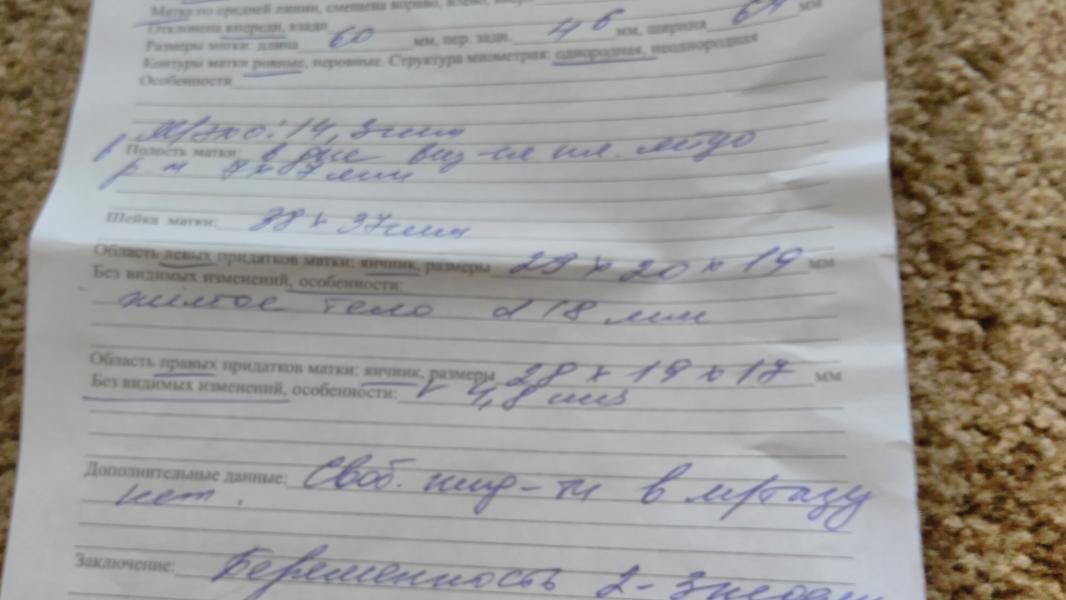 Матка по средней линии, смещена вправо, влево,
Отклонена кпереди, кзади
Размеры матки: длина 60 мм, пер. задн. 46 мм, ширина 64 мм
Контуры матки ровные, неровные. Структура миометрия: однородная, неоднородная
Особенности
М/эхо: 14,3 мм
Полость матки: в дне виз-ся пл. яйцо
р-м 7х7 мм
Шейка матки: 38 х 37 мм
Область левых придатков матки: яичник, размеры 29 х 20 х 19 мм
Без видимых изменений, особенности:
желтое тело d 18 мм
Область правых придатков матки: яичник, размеры 28 х 19 х 17 мм
Без видимых изменений, особенности: V 4,8 см3
Дополнительные данные: Своб. жид-ти в м/тазу
нет.
Заключение: Беременность 2-3 недели